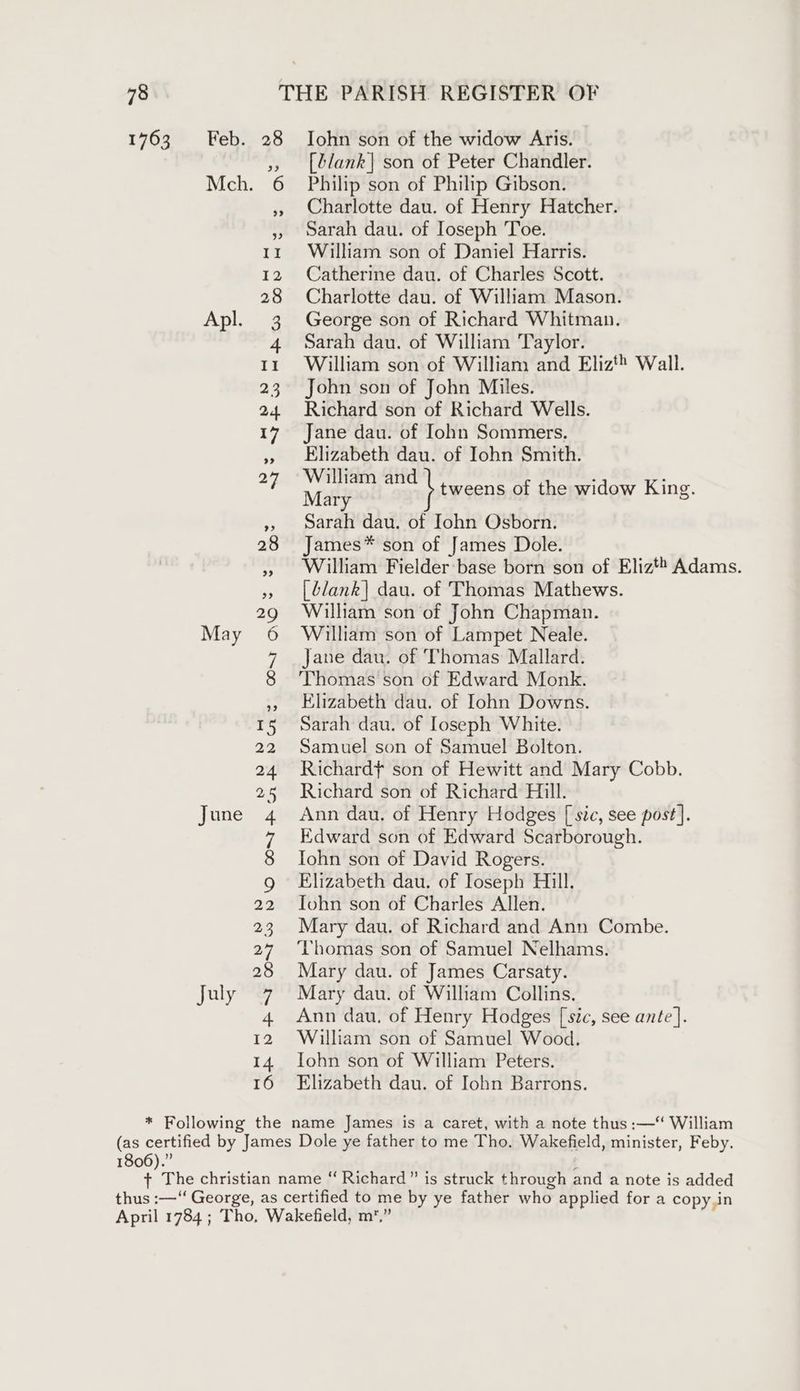 78 THE PARISH REGISTER OF
1763 Feb. 28 Iohn son of the widow Aris.
„ [blank] son of Peter Chandler.
Mch. 6 Philip son of Philip Gibson.
„ Charlotte dau. of Henry Hatcher.
„ Sarah dau. of Ioseph Toe.
11 William son of Daniel Harris.
12 Catherine dau. of Charles Scott.
28 Charlotte dau. of William Mason.
Apl. 3 George son of Richard Whitman.
4 Sarah dau. of William Taylor.
11 William son of William and Elizth Wall.
23 John son of John Miles.
24 Richard son of Richard Wells.
17 Jane dau. of Iohn Sommers.
„ Elizabeth dau. of Iohn Smith.
27 William and
Mary } tweens of the widow King.
„ Sarah dau. of Iohn Osborn.
28 James* son of James Dole.
„ William Fielder base born son of Elizth Adams.
„ [blank] dau. of Thomas Mathews.
29 William son of John Chapman.
May 6 William son of Lampet Neale.
7 Jane dau. of Thomas Mallard.
8 Thomas son of Edward Monk.
„ Elizabeth dau. of Iohn Downs.
15 Sarah dau. of Ioseph White.
22 Samuel son of Samuel Bolton.
24 Richard† son of Hewitt and Mary Cobb.
25 Richard son of Richard Hill.
June 4 Ann dau. of Henry Hodges [sic, see post].
7 Edward son of Edward Scarborough.
8 Iohn son of David Rogers.
9 Elizabeth dau. of Ioseph Hill.
22 Iohn son of Charles Allen.
23 Mary dau. of Richard and Ann Combe.
27 Thomas son of Samuel Nelhams.
28 Mary dau. of James Carsaty.
July 7 Mary dau. of William Collins.
4 Ann dau. of Henry Hodges [sic, see ante].
12 William son of Samuel Wood.
14 Iohn son of William Peters.
16 Elizabeth dau. of Iohn Barrons.
* Following the name James is a caret, with a note thus:—“ William
(as certified by James Dole ye father to me Tho. Wakefield, minister, Feby.
1806).”
† The christian name “ Richard ” is struck through and a note is added
thus:—“ George, as certified to me by ye father who applied for a copy in
April 1784; Tho. Wakefield, mr.”